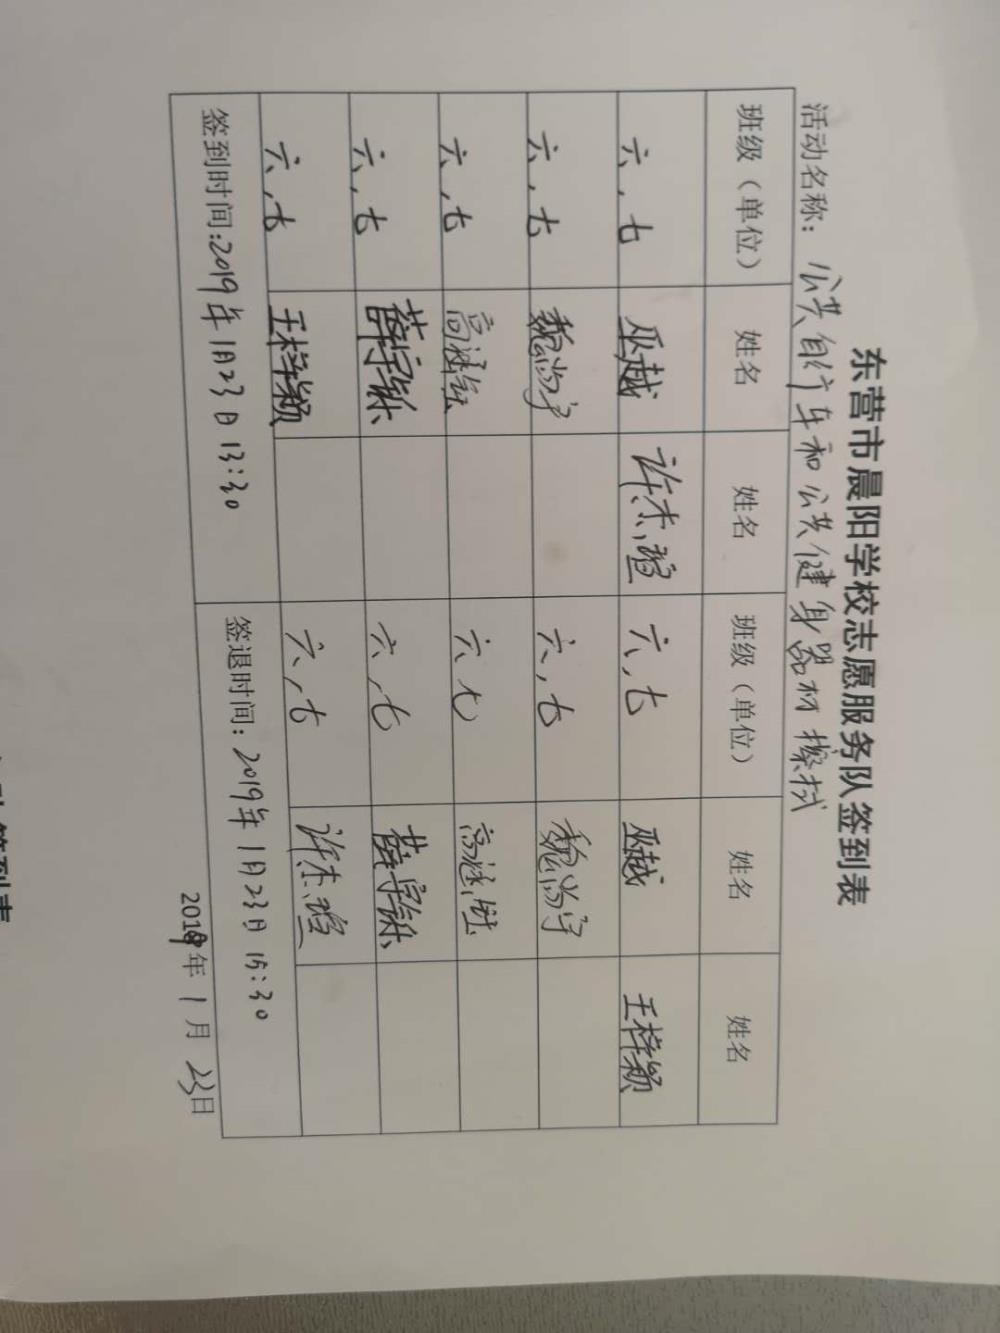 东营市晨阳学校志愿服务队签到表
活动名称：公共自行车和公共健身器材擦拭
班级（单位） 姓名 姓名 班级（单位） 姓名 姓名
六，七 巫越 许杰瑄 六，七 巫越 王梓颖
六，七 魏尚宇 六，七 魏尚宇
六，七 六 七
六，七 薛宇 六，七 薛宇
六，七 王梓颖 六，七 许杰瑄
签到时间：2019年1月23日13:30 签退时间：2019年1月23日15:30
2019年1月23日
签到表